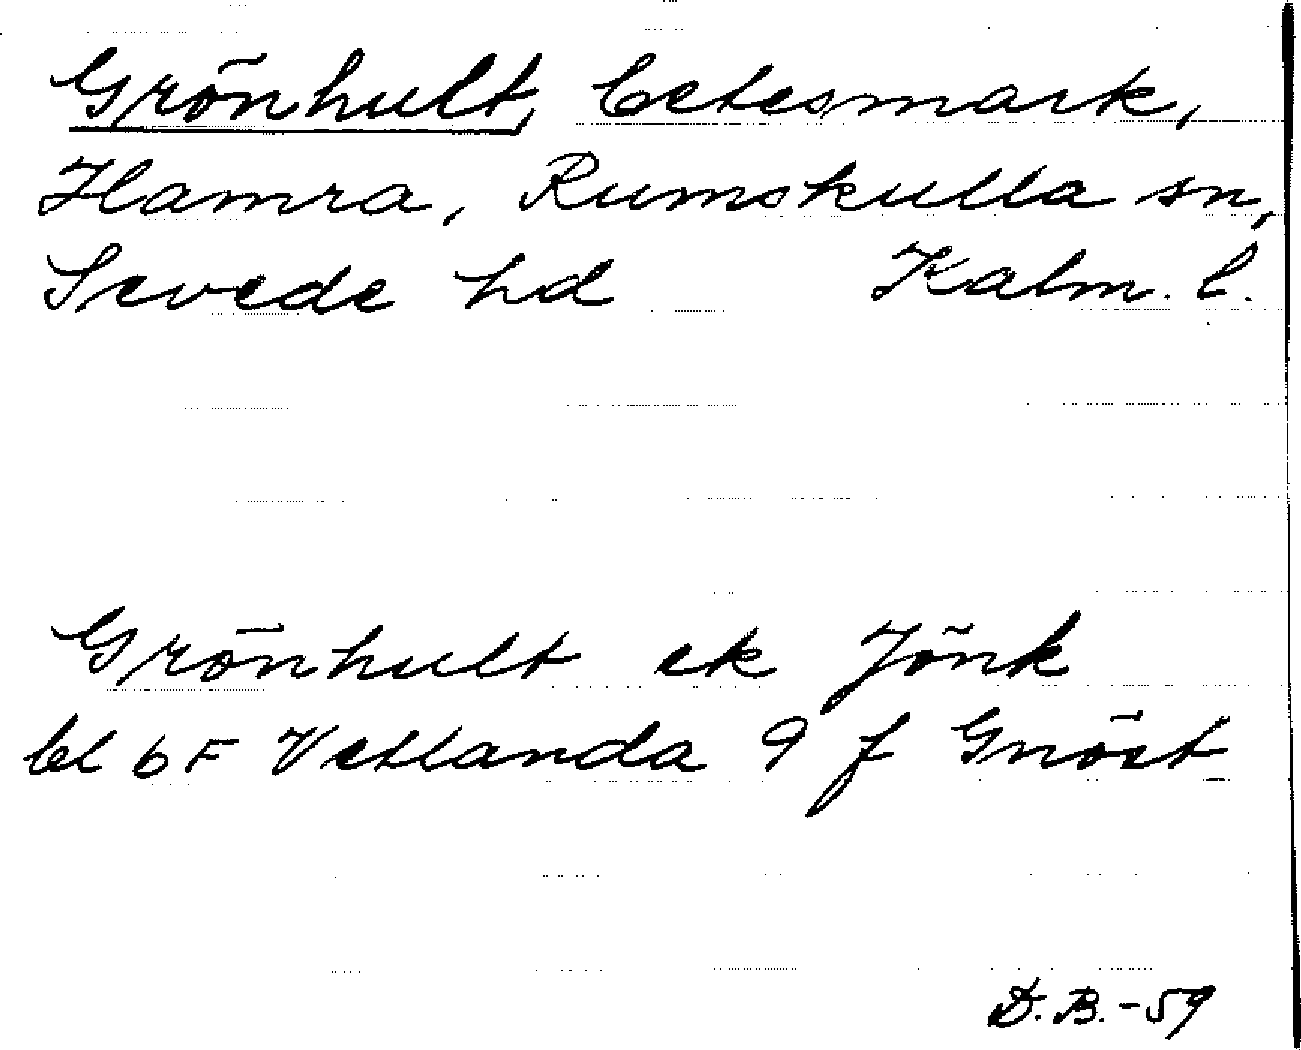 Grönhult, betesmark,
Hamra, Rumskulla sn,
Sevede hd Kalm. l.
Grönhult ek Jönk
bl 6F Vetlanda 9 f Gnöst
D.B.-59